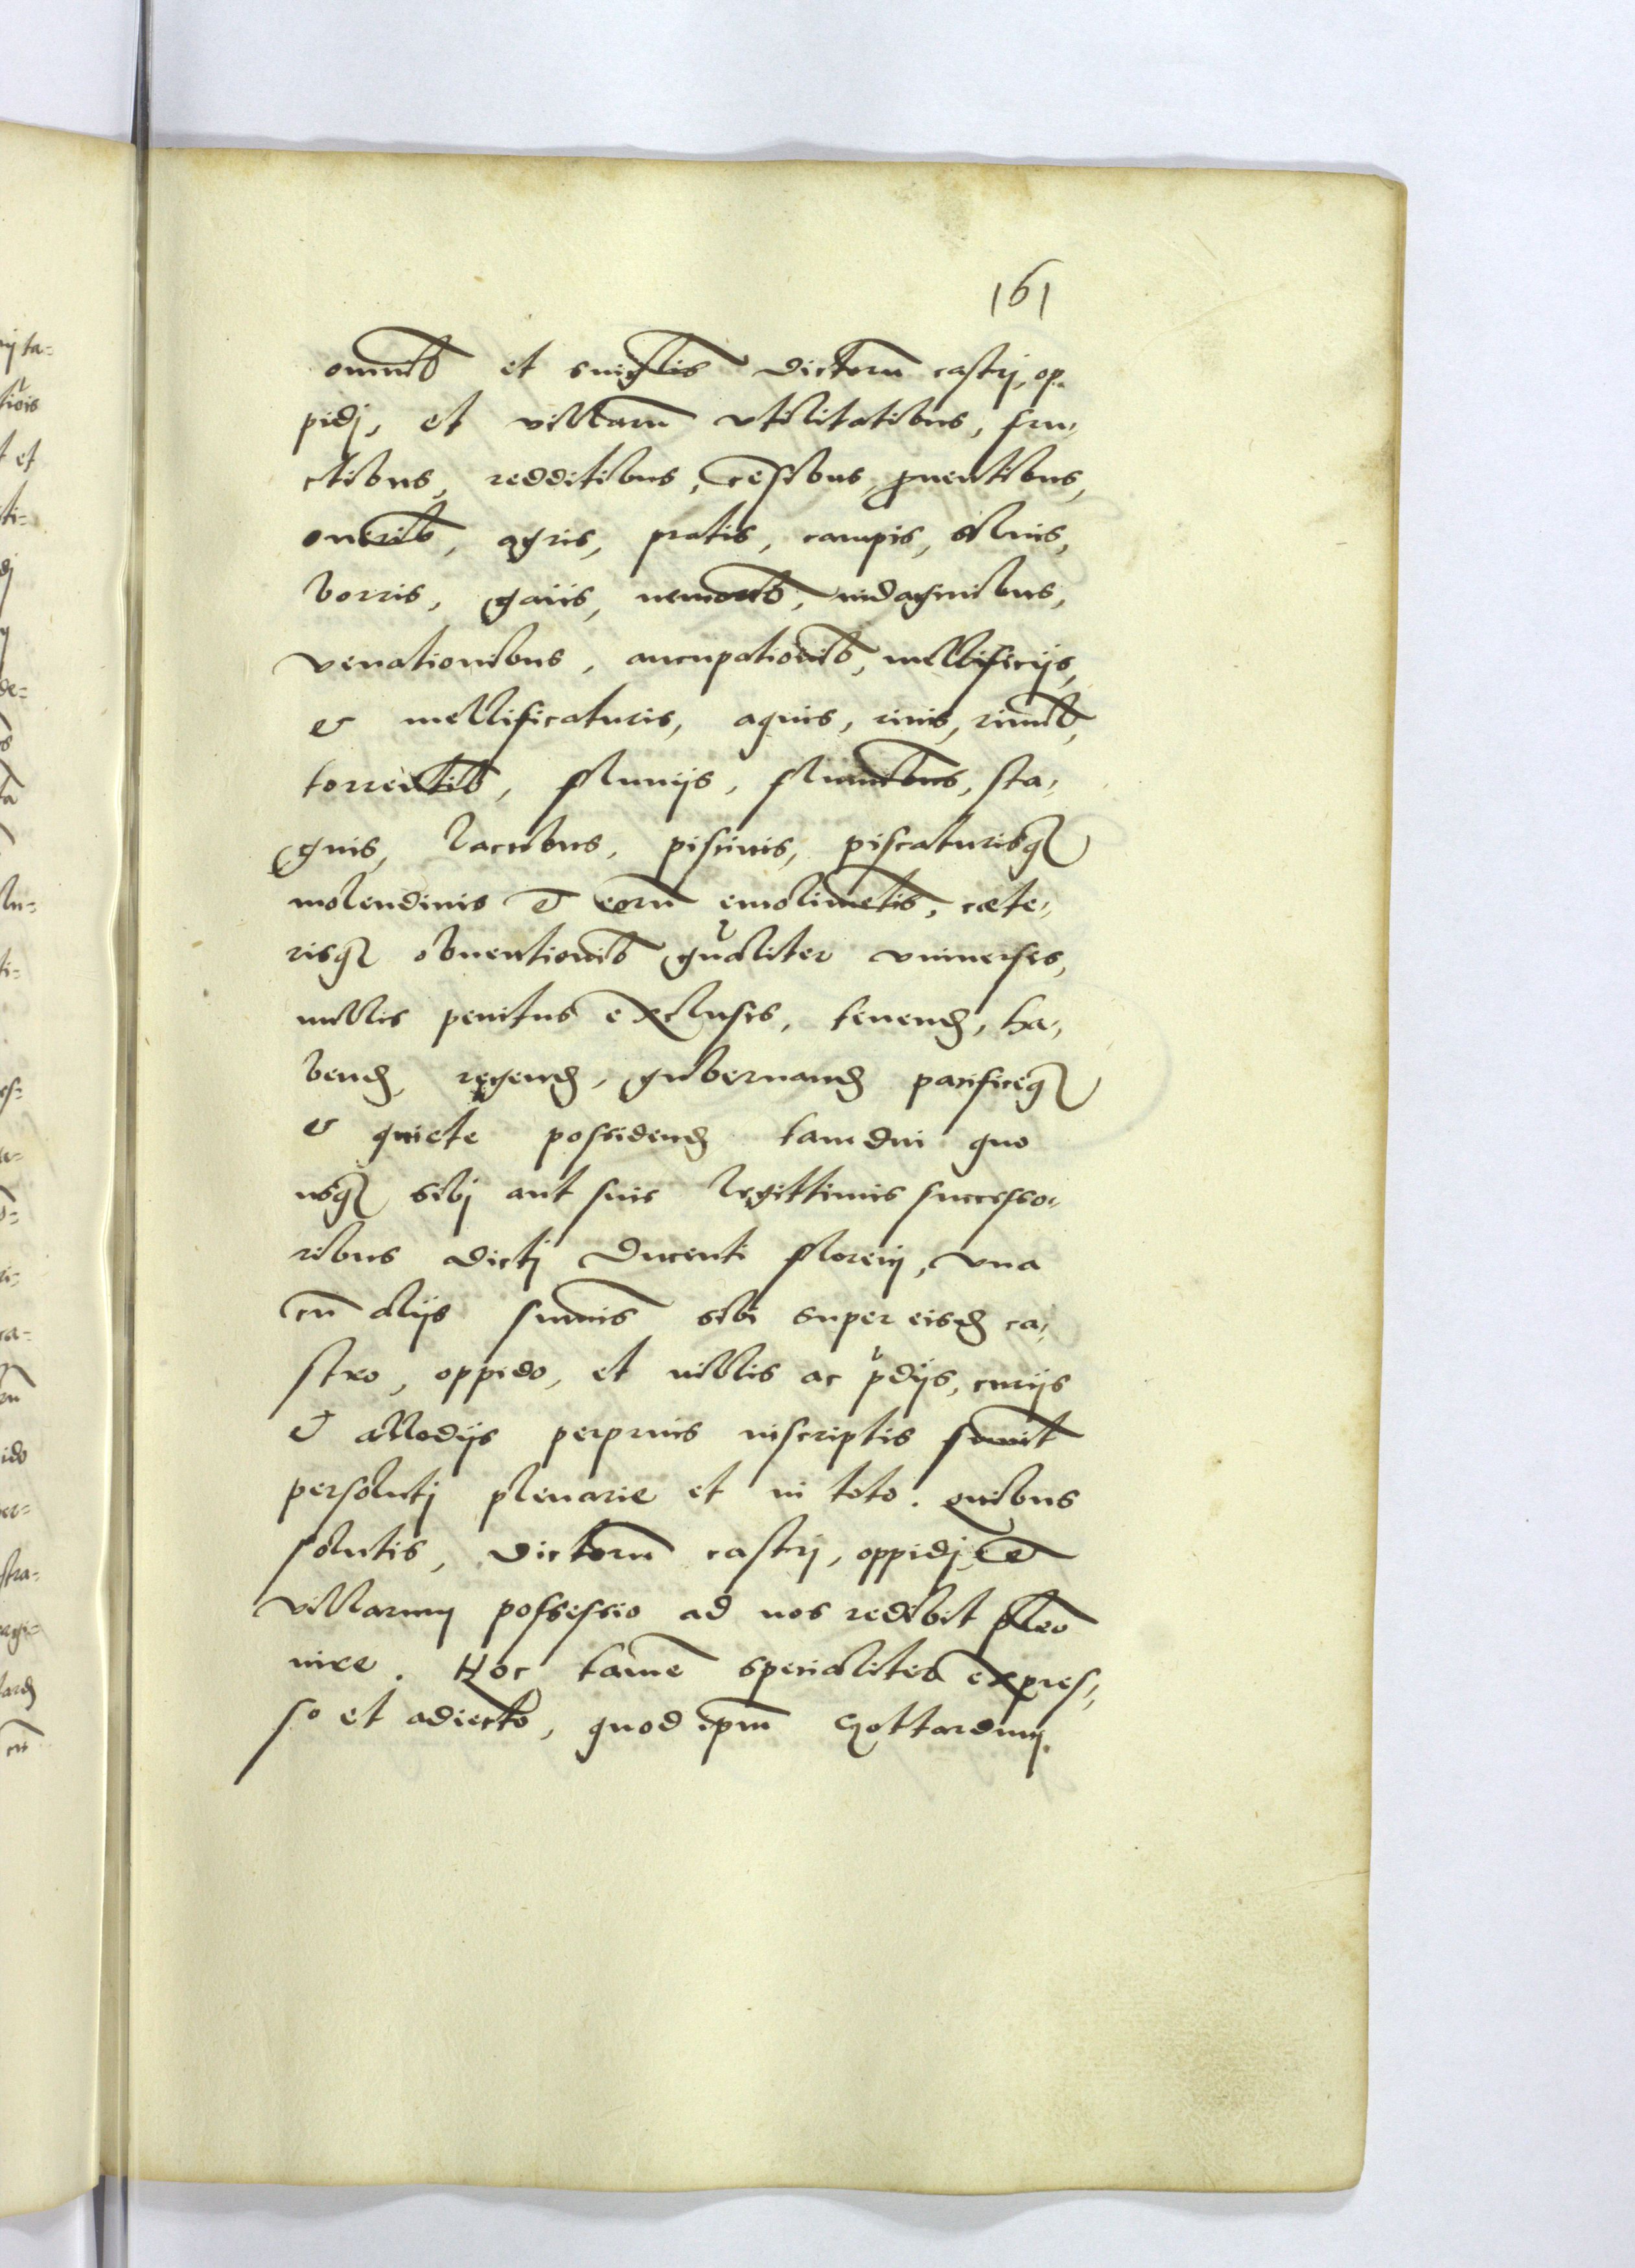 161
omnib et singlis dictoru castrj, op„
pidj, et villaru vtilitatibus, fru„
ctibus, redditibus, cesibus, puentibus,
onerib, agris, pratis, campis, siluis,
borris, gaiis, nemorib, indaginibus,
venationibus, aucupationib, mellificijs,
& mellificaturis, aquis, riuis, riuulis,
torretib, fluuijs, fluminibus, sta„
gnis, lacubus, piscinis, piscaturisq
molendinis et eoru emolimetis, cæte„
risq obuentionib gualiter vniuersis,
nullis penitus exclusis, tenend, ha„
bend, regend, gubernand pacificeq
& quiete possidend tamdiu quo
usq sibj aut suis legittimis successo„
ribus dictj ducenti florenj, vna
cu alijs sumis sibi super eisd ca„
stro, oppido, et villis ac pdijs, curijs
et allodijs perprius inscriptis fuerit
persolutj plenarie et in toto. quibus
solutis, dictoru castrj, oppidj, et
villarum possessio ad nos redibit pleo
nire. Hoc tame specialiter expres„
so et adiecto, quod ipm Gottardum